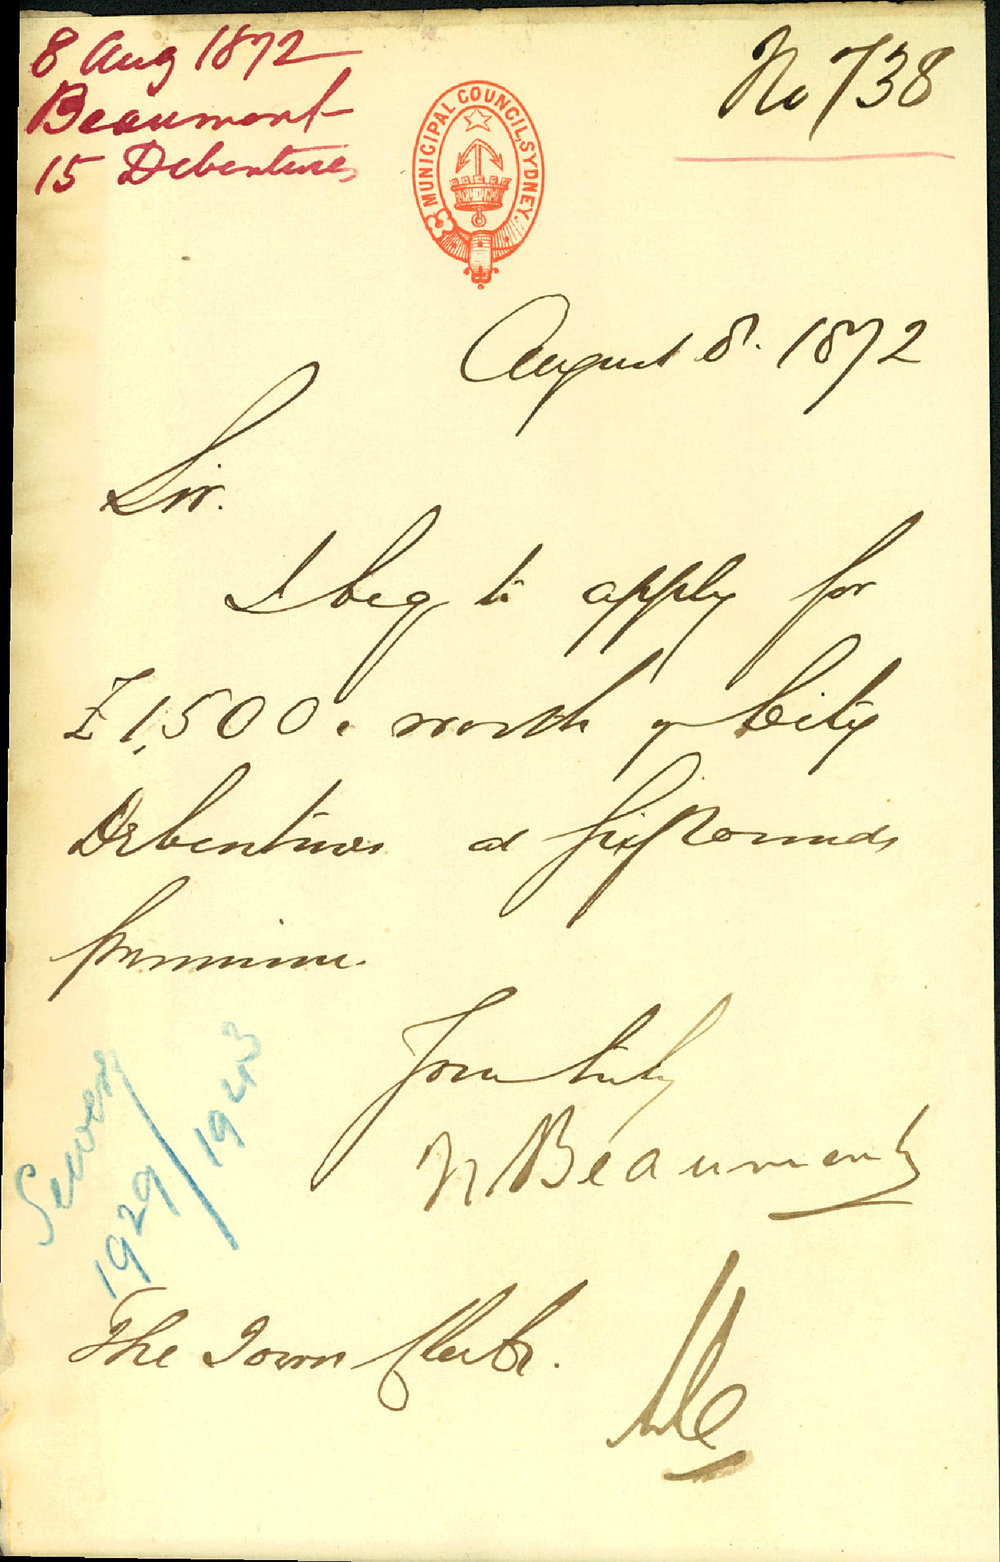 8 Aug 1872
Beaumont
15 Debentures
No 738
MUNICIPAL COUNCIL, SYDNEY.
August 8. 1872
Sir.
I beg to apply for
£1,500. worth of City
Debentures at Six Pounds
premium.
Yours truly
N Beaumont
Sewer
1929/1943
The Town Clerk.